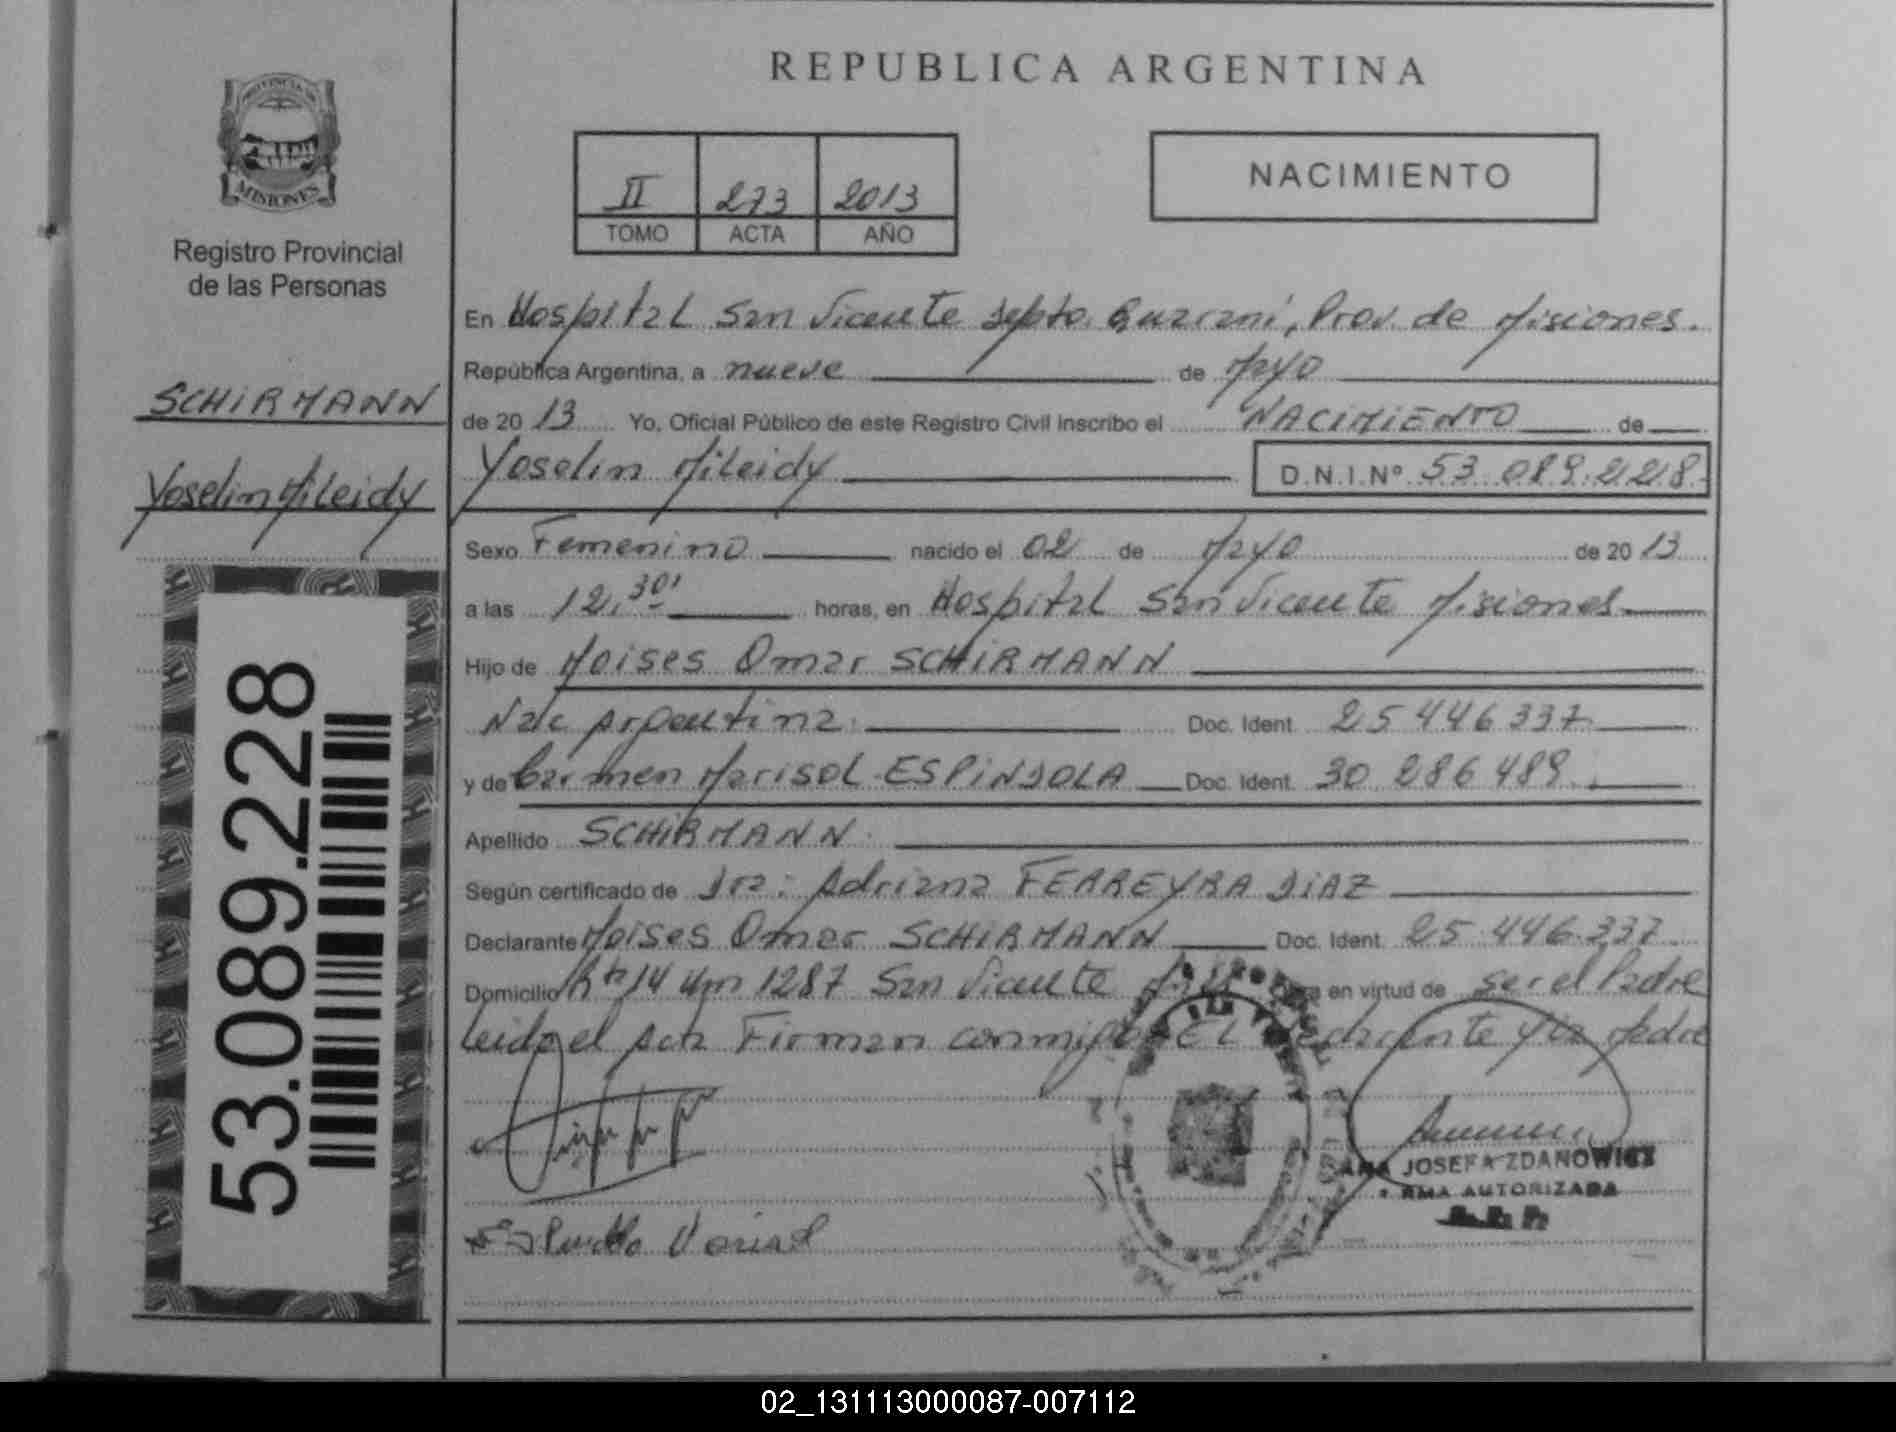 REPUBLICA ARGENTINA
PROVINCIA DE
MISIONES
Registro Provincial
de las Personas
SCHIRMANN
Yoselin Mileidy
53.089.228
II 273 2013
TOMO ACTA AÑO
NACIMIENTO
En Hospital San Vicente Depto. Guarani, Prov. de Misiones.
República Argentina, a nueve de Mayo
de 2013 Yo, Oficial Público de este Registro Civil Inscribo el NACIMIENTO de
Yoselin Mileidy D.N.I.Nº 53.089.228
Sexo Femenino nacido el 02 de Mayo de 2013
a las 12,30' horas, en Hospital San Vicente Misiones
Hijo de Moises Omar SCHIRMANN
Nac Argentina. Doc. Ident. 25 446 337
y de Carmen Marisol ESPINDOLA Doc. Ident. 30 286 489
Apellido SCHIRMANN
Según certificado de Dra: Adriana FERREYRA DIAZ
Declarante Moises Omar SCHIRMANN Doc. Ident. 25.446.337
Domicilio Rta 14 Km 1287 San Vicente en virtud de ser el Padre
Leida el Acta Firman conmigo EL Declarante y la Madre
ANA JOSEFA ZDANOWICZ
FIRMA AUTORIZADA
02_131113000087-007112